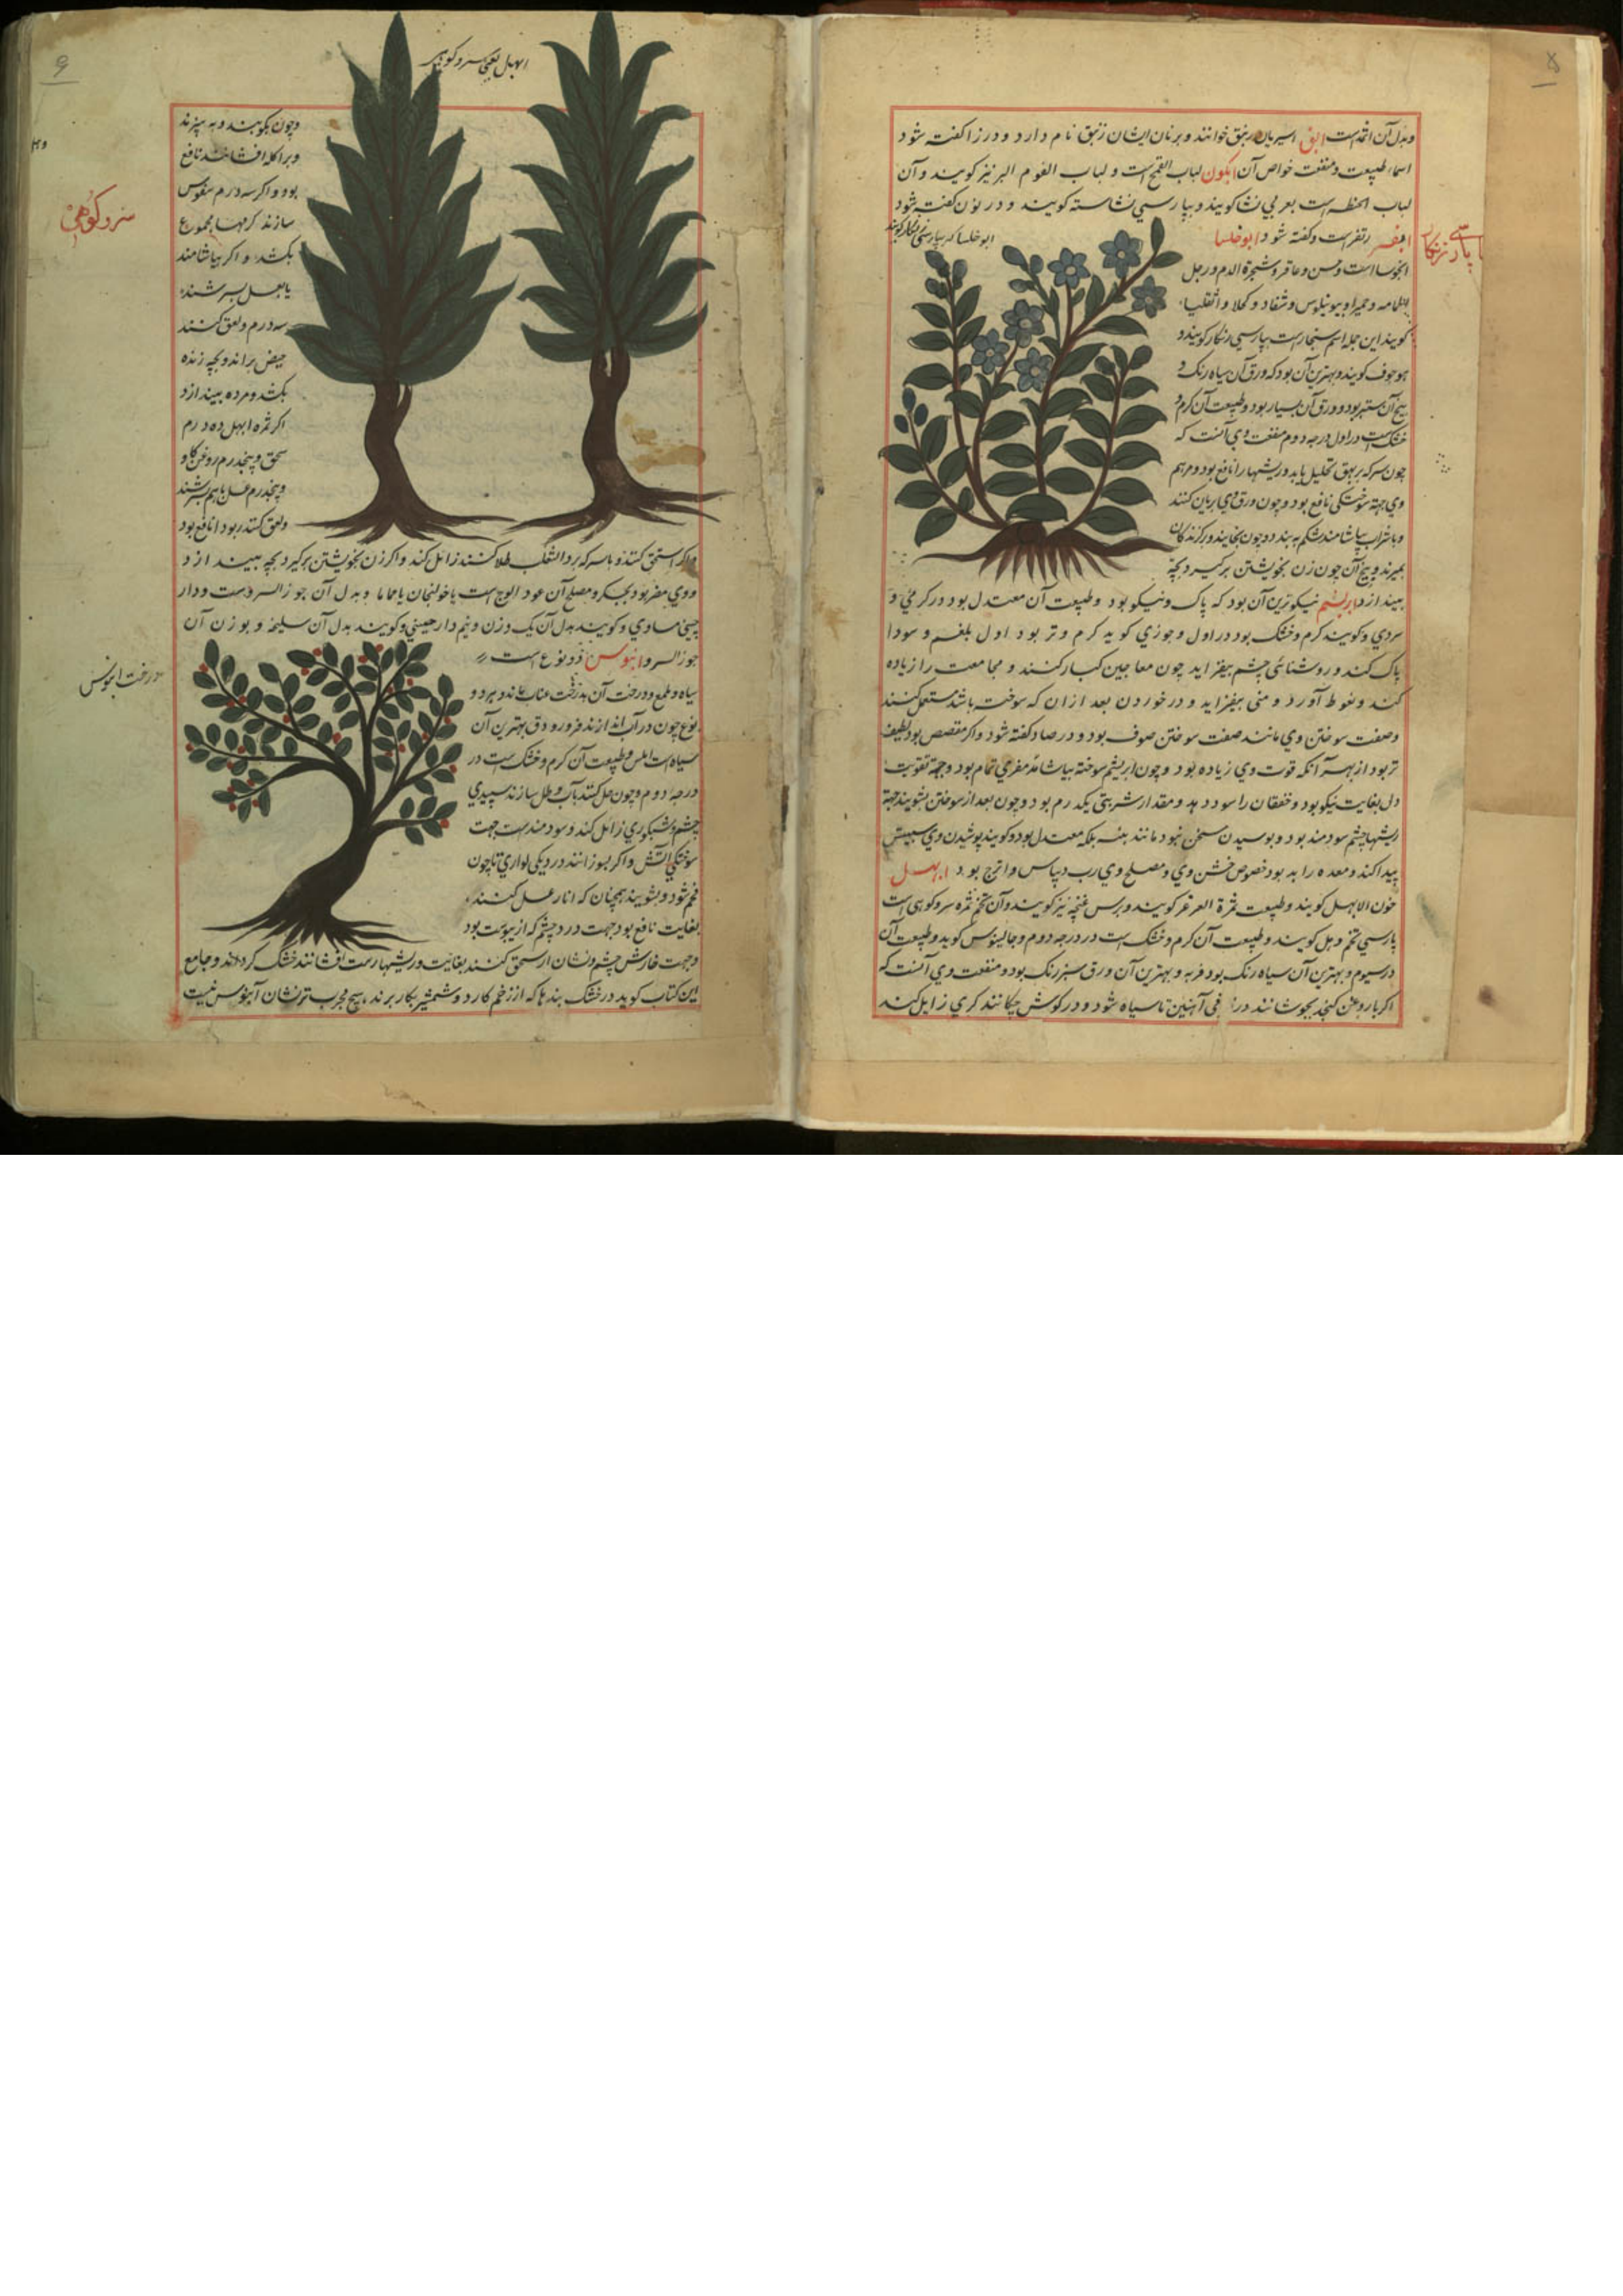 وبدل آن اثمدست ابق اسیریان زنبق خوانند وبرنان ایشان زنبق نام دارد ودر زا کفته شود
اسما، طبیعت ومنفعت خواص آن ابکون لباب القمح است و لباب الفوم البر نیز کویند وآن
لباب الحنطه است بعربی نشا کویند وبپارسی نشاسته کویند و در نون کفته شود
رتفرست وکفته شود ابوخلسا
ابوخلسا که بپارسی
انجوسا است وحس وعاقر وشجرة الدم ورجل
الحمامه وحمیرا وشفار و کحلا و
کویند این جمله اسم شنجارست بپارسی زنکار کویند و
هوجوف کویند وبهترین آن بود که ورق آن سیاه رنک و
بیخ آن ستبر بود وورق آن بسیار بود وطبیعت آن کرم و
خشک است در اول درجه دوم منفعت وی آنست که
چون بسرکه بر بهق تحلیل یابد وریشها را نافع بود ومرهم
وی جهته سوختکی نافع بود وچون ورق وی بریان کنند
وبا شراب بیاشامند شکم به بندد وچون بخایند وبر کزندکان
بمیرند وبیخ آن چون زن بخویشتن بر کیرد بچه
بیندازد ابریشم نیکوترین آن بود که پاک ونیکو بود وطبیعت آن معتدل بود در کرمی و
سردی وکویند کرم وخشک بود در اول وجوزی کوید کرم وتر بود اول بلغم و سودا
پاک کند و روشنائی چشم بیفزاید چون معاجین کبار کنند و مجامعت را زیاده
کند ونعوظ آورد و منی بیفزاید و در خوردن بعد ازان که سوخته باشد مستعمل کنند
وصفت سوختن وی مانند صفت سوختن صوف بود ودر صاد کفته شود واکر مقصص بود لطیف
تر بود از بهر آنکه قوت وی زیاده بود وچون ابریشم سوخته بیاشامند مفرحی تمام بود وجهة تقویت
دل بغایت نیکو بود وخفقان را سود دهد ومقدار شربتی یکدرم بود وچون بعد از سوختن بشویند جهة
ریشها چشم سودمند بود و پوسیدن سخن نبود مانند پنبه بلکه معتدل بود وکویند پوشیدن وی سپش
پیدا کند ومعده را بد بود خصوص خشن وی ومصلح وی رب ریباس واترج بود ابهل
خون الابهل کویند وطبیعت ثمرة العرعر کویند وبرس غنچه نیز کویند وآن تخم ثمره سرو کوهی است
پارسی تخم وهل کویند وطبیعت آن کرم وخشک است در درجه دوم وجالینوس کوید وطبیعت آن
در سیوم وبهترین آن سیاه رنک بود فربه وبهترین آن ورق سبز رنک بود ومنفعت وی آنست که
اکر با روغن کنجد بجوشانند در ظرفی آهنین تا سیاه شود ودر کوش چکانند کری زایل کند
ابهل یعنی سرو کوهی
سرو کوهی
وچون بکوبند وبه بیزند
وبر آکله افشانند نافع
بود واکر سه درم سفوس
سازند کرمها مجموع
بکشد، و اکر بیاشامند
یا بعسل بسرشند
سه درم ولعق کنند
حیض براند وبچه زنده
بکشد ومرده بیندازد
اکر ثمره ابهل ده درم
سحق وپنجدرم روغن کاو
وپنجدرم عسل باهم بسرشند
ولعق کنند ربو را نافع بود
واکر سحق کنند وبا سرکه بر داء الثعلب طلا کنند زائل کند واکر زن بخویشتن برکیرد بچه بیندازد
ووی مضر بود بجکر ومصلح آن عود الوج است یا خولنجان یا حماما وبدل آن جوز السرو است ودار
چینی مساوی وکویند بدل آن یک وزن ونیم دارچینی وکویند بدل آن سلیخه وبوزن آن
جوز السرو ابنوس دو نوع است
درخت ابنوس
سیاه وملمع ودرخت آن بدرخت عناب ماند وهر دو
نوع چون در آب اندازند فرو رود وبهترین آن
سیاه است املس وطبیعت آن کرم وخشک است در
درجه دوم وچون حل کنند بآب وطلا سازند سپیدی
چشم وشبکوری زائل کند وسودمند بود جهت
سوختکی آتش واکر بسوزانند در دیکی لواری تا چون
فحم شود وبشویند همچنان که انار عسل کنند
بغایت نافع بود جهت درد چشم که از یبوست بود
وجهت خارش چشم ونشان ار سحق کنند بغایت وریشها رست افشانند خشک کرداند وجامع
این کتاب کوید در خشک بندها که از زخم کارد وشمشیر بکار برند، هیچ مجرب تر نشان آبنوس نیست